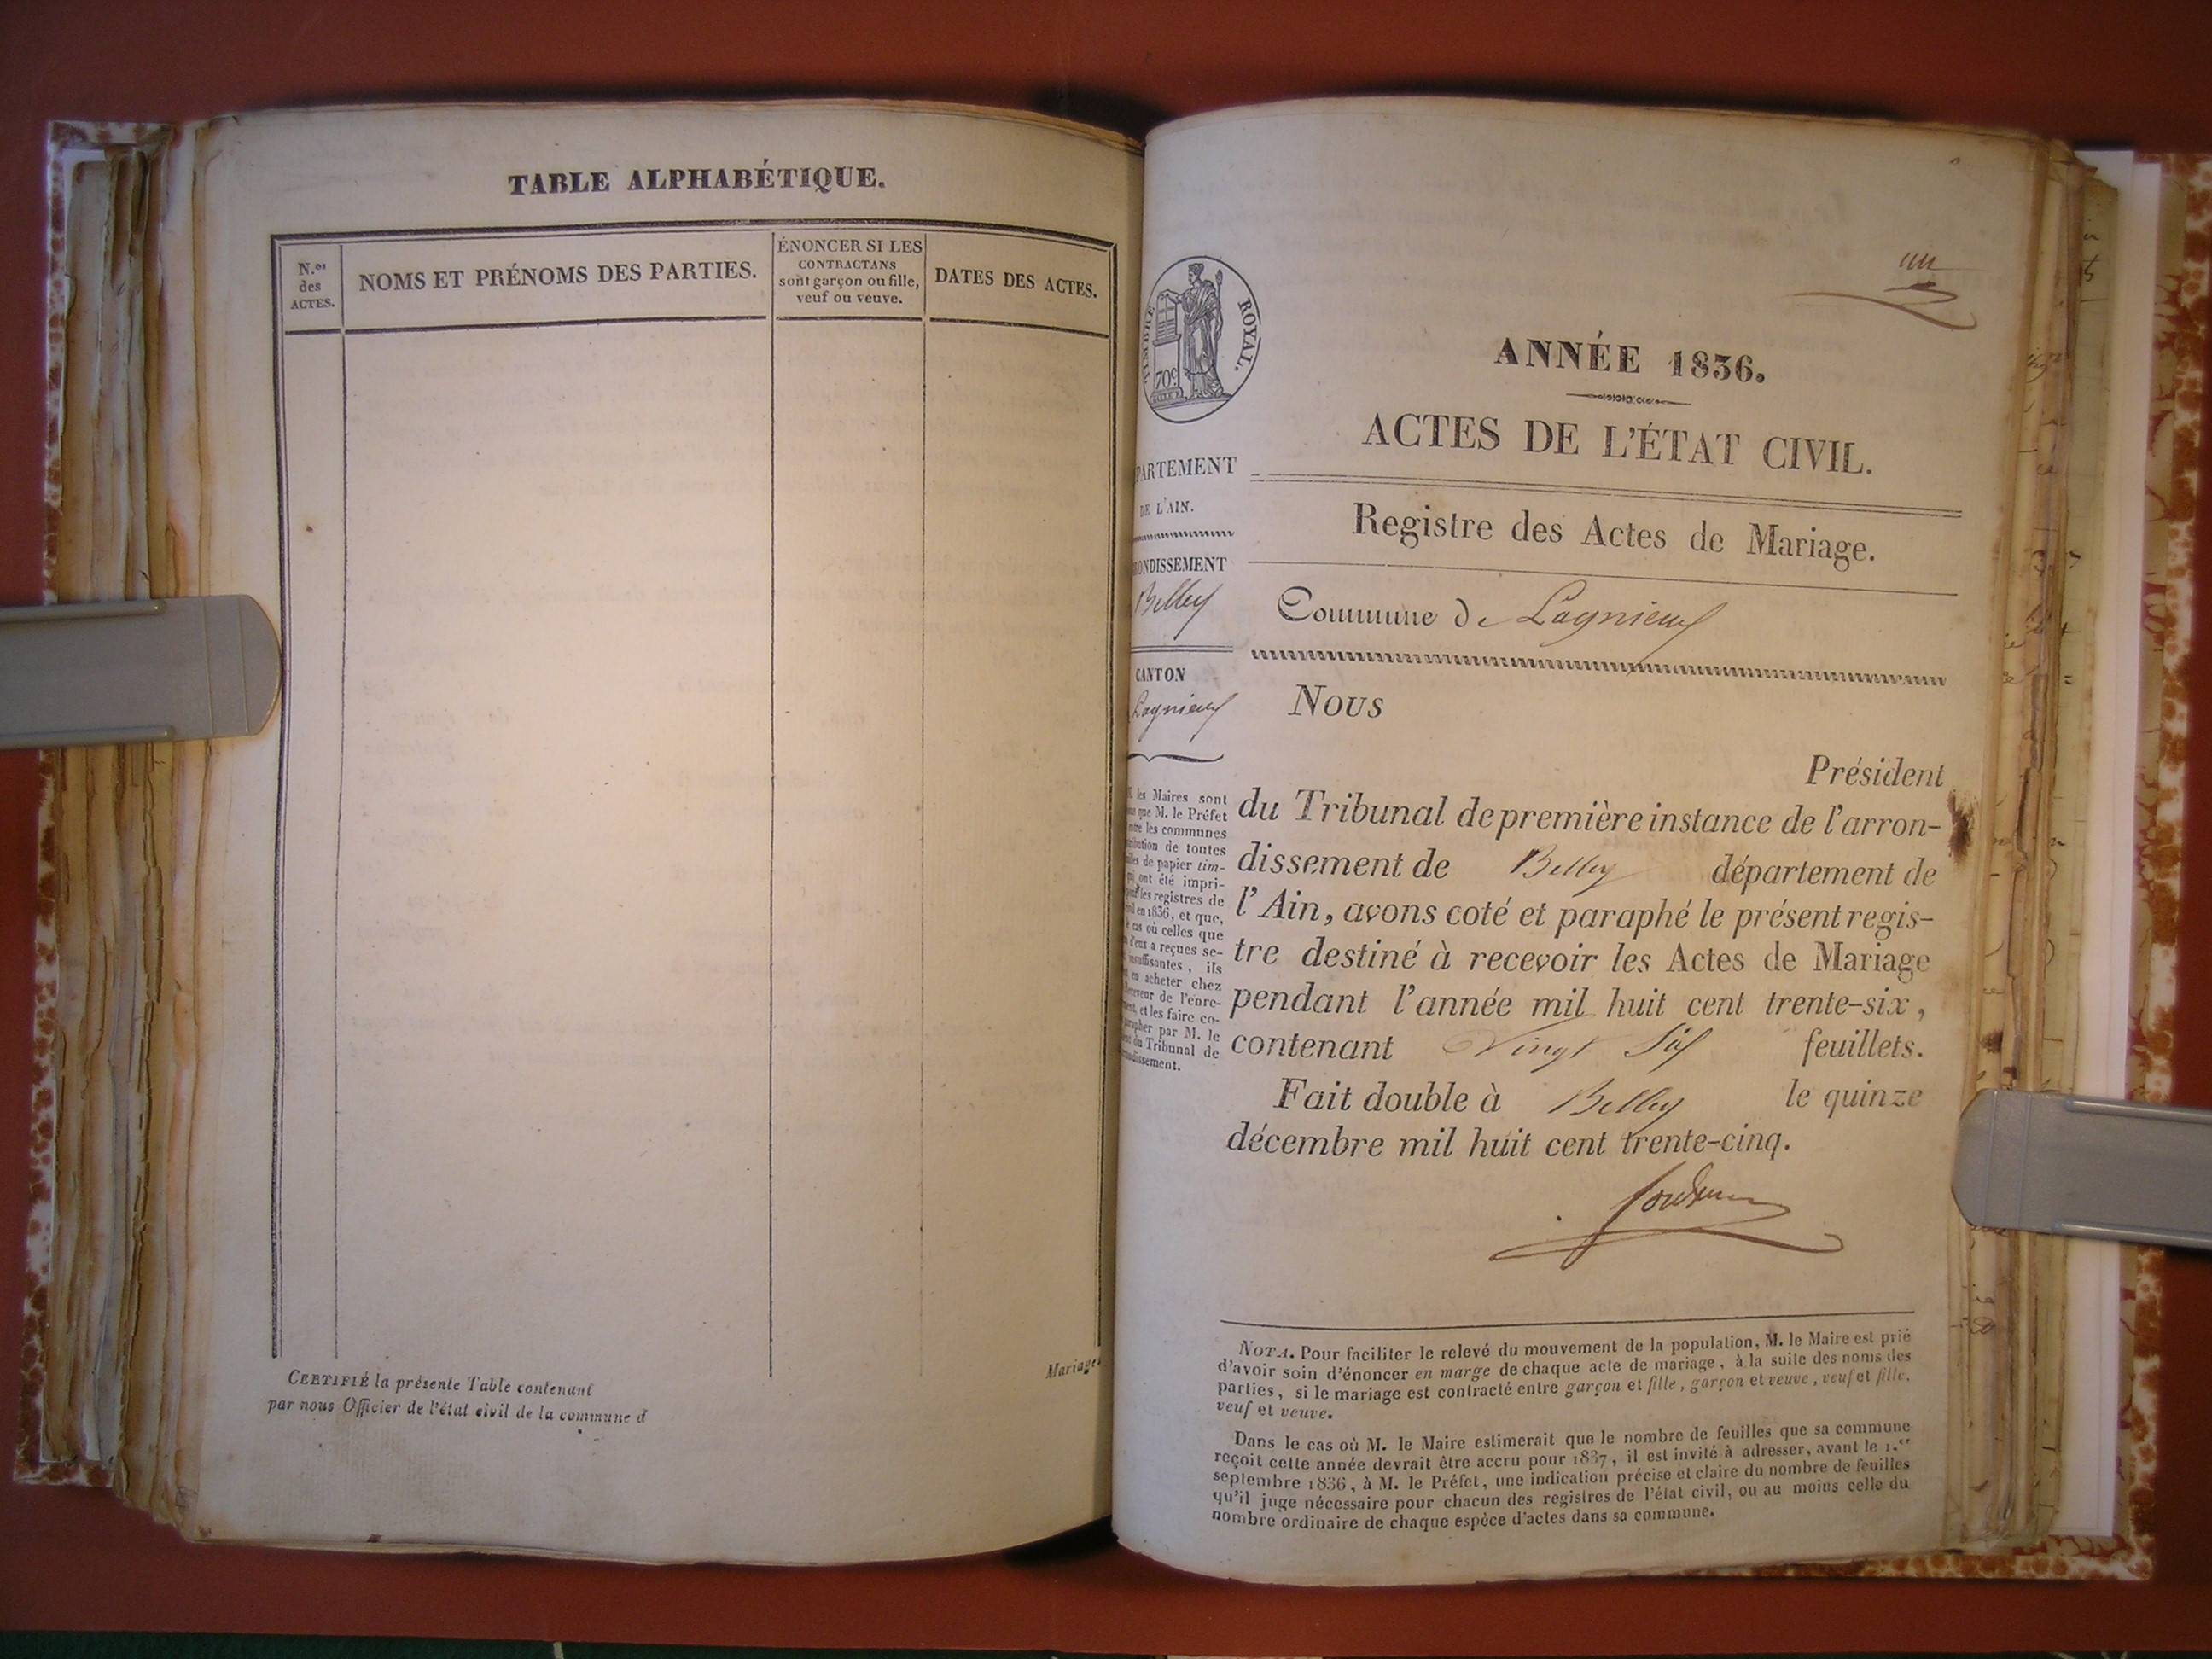 TABLE ALPHABÉTIQUE.
N.os
des
ACTES.
NOMS ET PRÉNOMS DES PARTIES.
ÉNONCER SI LES
CONTRACTANS
sont garçon ou fille,
veuf ou veuve.
DATES DES ACTES.
CERTIFIÉ la présente Table contenant
par nous Officier de l'état civil de la commune d
Mariages
un
TIMBRE ROYAL.
70c
ANNÉE 1836.
ACTES DE L'ÉTAT CIVIL.
PARTEMENT
DE L'AIN.
Registre des Actes de Mariage.
ONDISSEMENT
Belley
Commune de Lagnieu
CANTON
Lagnieu
Nous
Président
du Tribunal de première instance de l'arron-
dissement de Belley département de
l'Ain, avons coté et paraphé le présent regis-
tre destiné à recevoir les Actes de Mariage
pendant l'année mil huit cent trente-six,
contenant Vingt Six feuillets.
Fait double à Belley le quinze
décembre mil huit cent trente-cinq.
les Maires sont
que M. le Préfet
les communes
de toutes
de papier tim-
ont été impri-
les registres de
en 1836, et que,
cas où celles que
d'eux a reçues se-
insuffisantes, ils
en acheter chez
de l'enre-
et les faire co-
par M. le
du Tribunal de
NOTA. Pour faciliter le relevé du mouvement de la population, M. le Maire est prié
d'avoir soin d'énoncer en marge de chaque acte de mariage, à la suite des noms des
parties, si le mariage est contracté entre garçon et fille, garçon et veuve, veuf et fille,
veuf et veuve.
Dans le cas où M. le Maire estimerait que le nombre de feuilles que sa commune
reçoit cette année devrait être accru pour 1837, il est invité à adresser, avant le 1.er
septembre 1836, à M. le Préfet, une indication précise et claire du nombre de feuilles
qu'il juge nécessaire pour chacun des registres de l'état civil, ou au moins celle du
nombre ordinaire de chaque espèce d'actes dans sa commune.